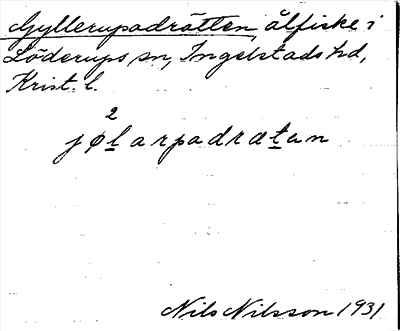 Gyllerupadrätten, ålfiske i
Löderups sn, Ingelstads hd,
Krist. l.
2
jølarpadratan
Nils Nilsson 1931